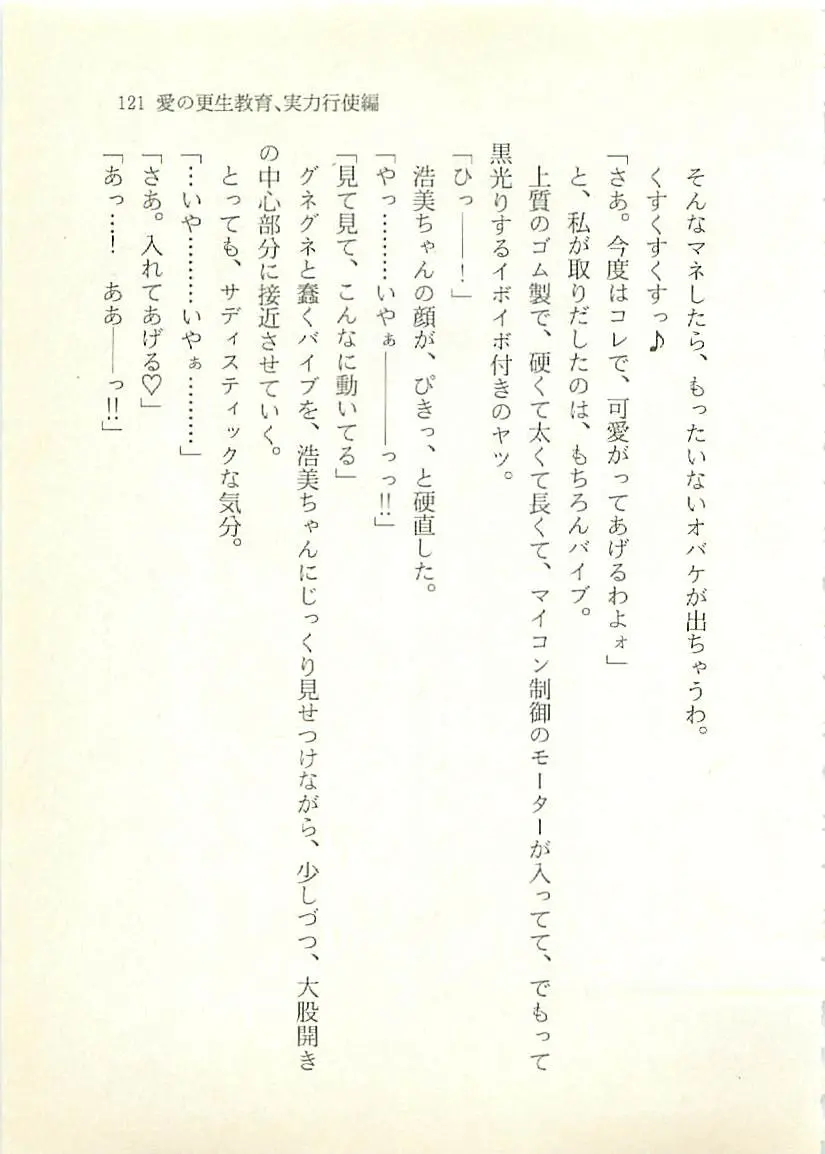 121 愛の更生教育、実力行使編
そんなマネしたら、もったいないオバケが出ちゃうわ。
くすくすくすっ♪
「さあ。今度はコレで、可愛がってあげるわよォ」
と、私が取りだしたのは、もちろんバイブ。
上質のゴム製で、硬くて太くて長くて、マイコン制御のモーターが入ってて、でもって
黒光りするイボイボ付きのヤツ。
「ひっ――！」
浩美ちゃんの顔が、ぴきっ、と硬直した。
「やっ………いやぁ――――っっ!!」
「見て見て、こんなに動いてる」
グネグネと蠢くバイブを、浩美ちゃんにじっくり見せつけながら、少しづつ、大股開き
の中心部分に接近させていく。
とっても、サディスティックな気分。
「…いや………いやぁ………」
「さあ。入れてあげる♡」
「あっ…！　ああ――っ!!」